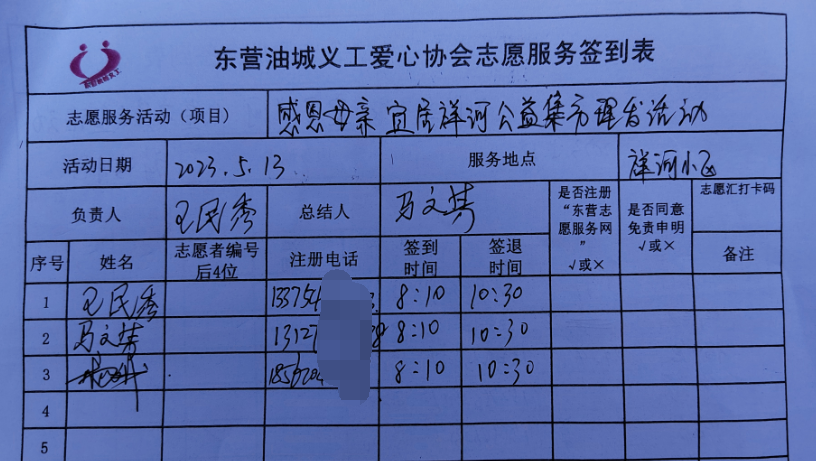 东营油城义工爱心协会志愿服务签到表
志愿服务活动（项目） 感恩母亲 宜居祥河公益集市理发活动
活动日期 2023.5.13 服务地点 祥河小区
负责人 王民秀 总结人 马文其 是否注册“东营志愿服务网” √或× 是否同意免责申明 √或× 志愿汇打卡码
序号 姓名 志愿者编号后4位 注册电话 签到时间 签退时间 备注
1 王民秀 8:10 10:30
2 马文其 1312 8:10 10:30
3 8:10 10:30
4
5